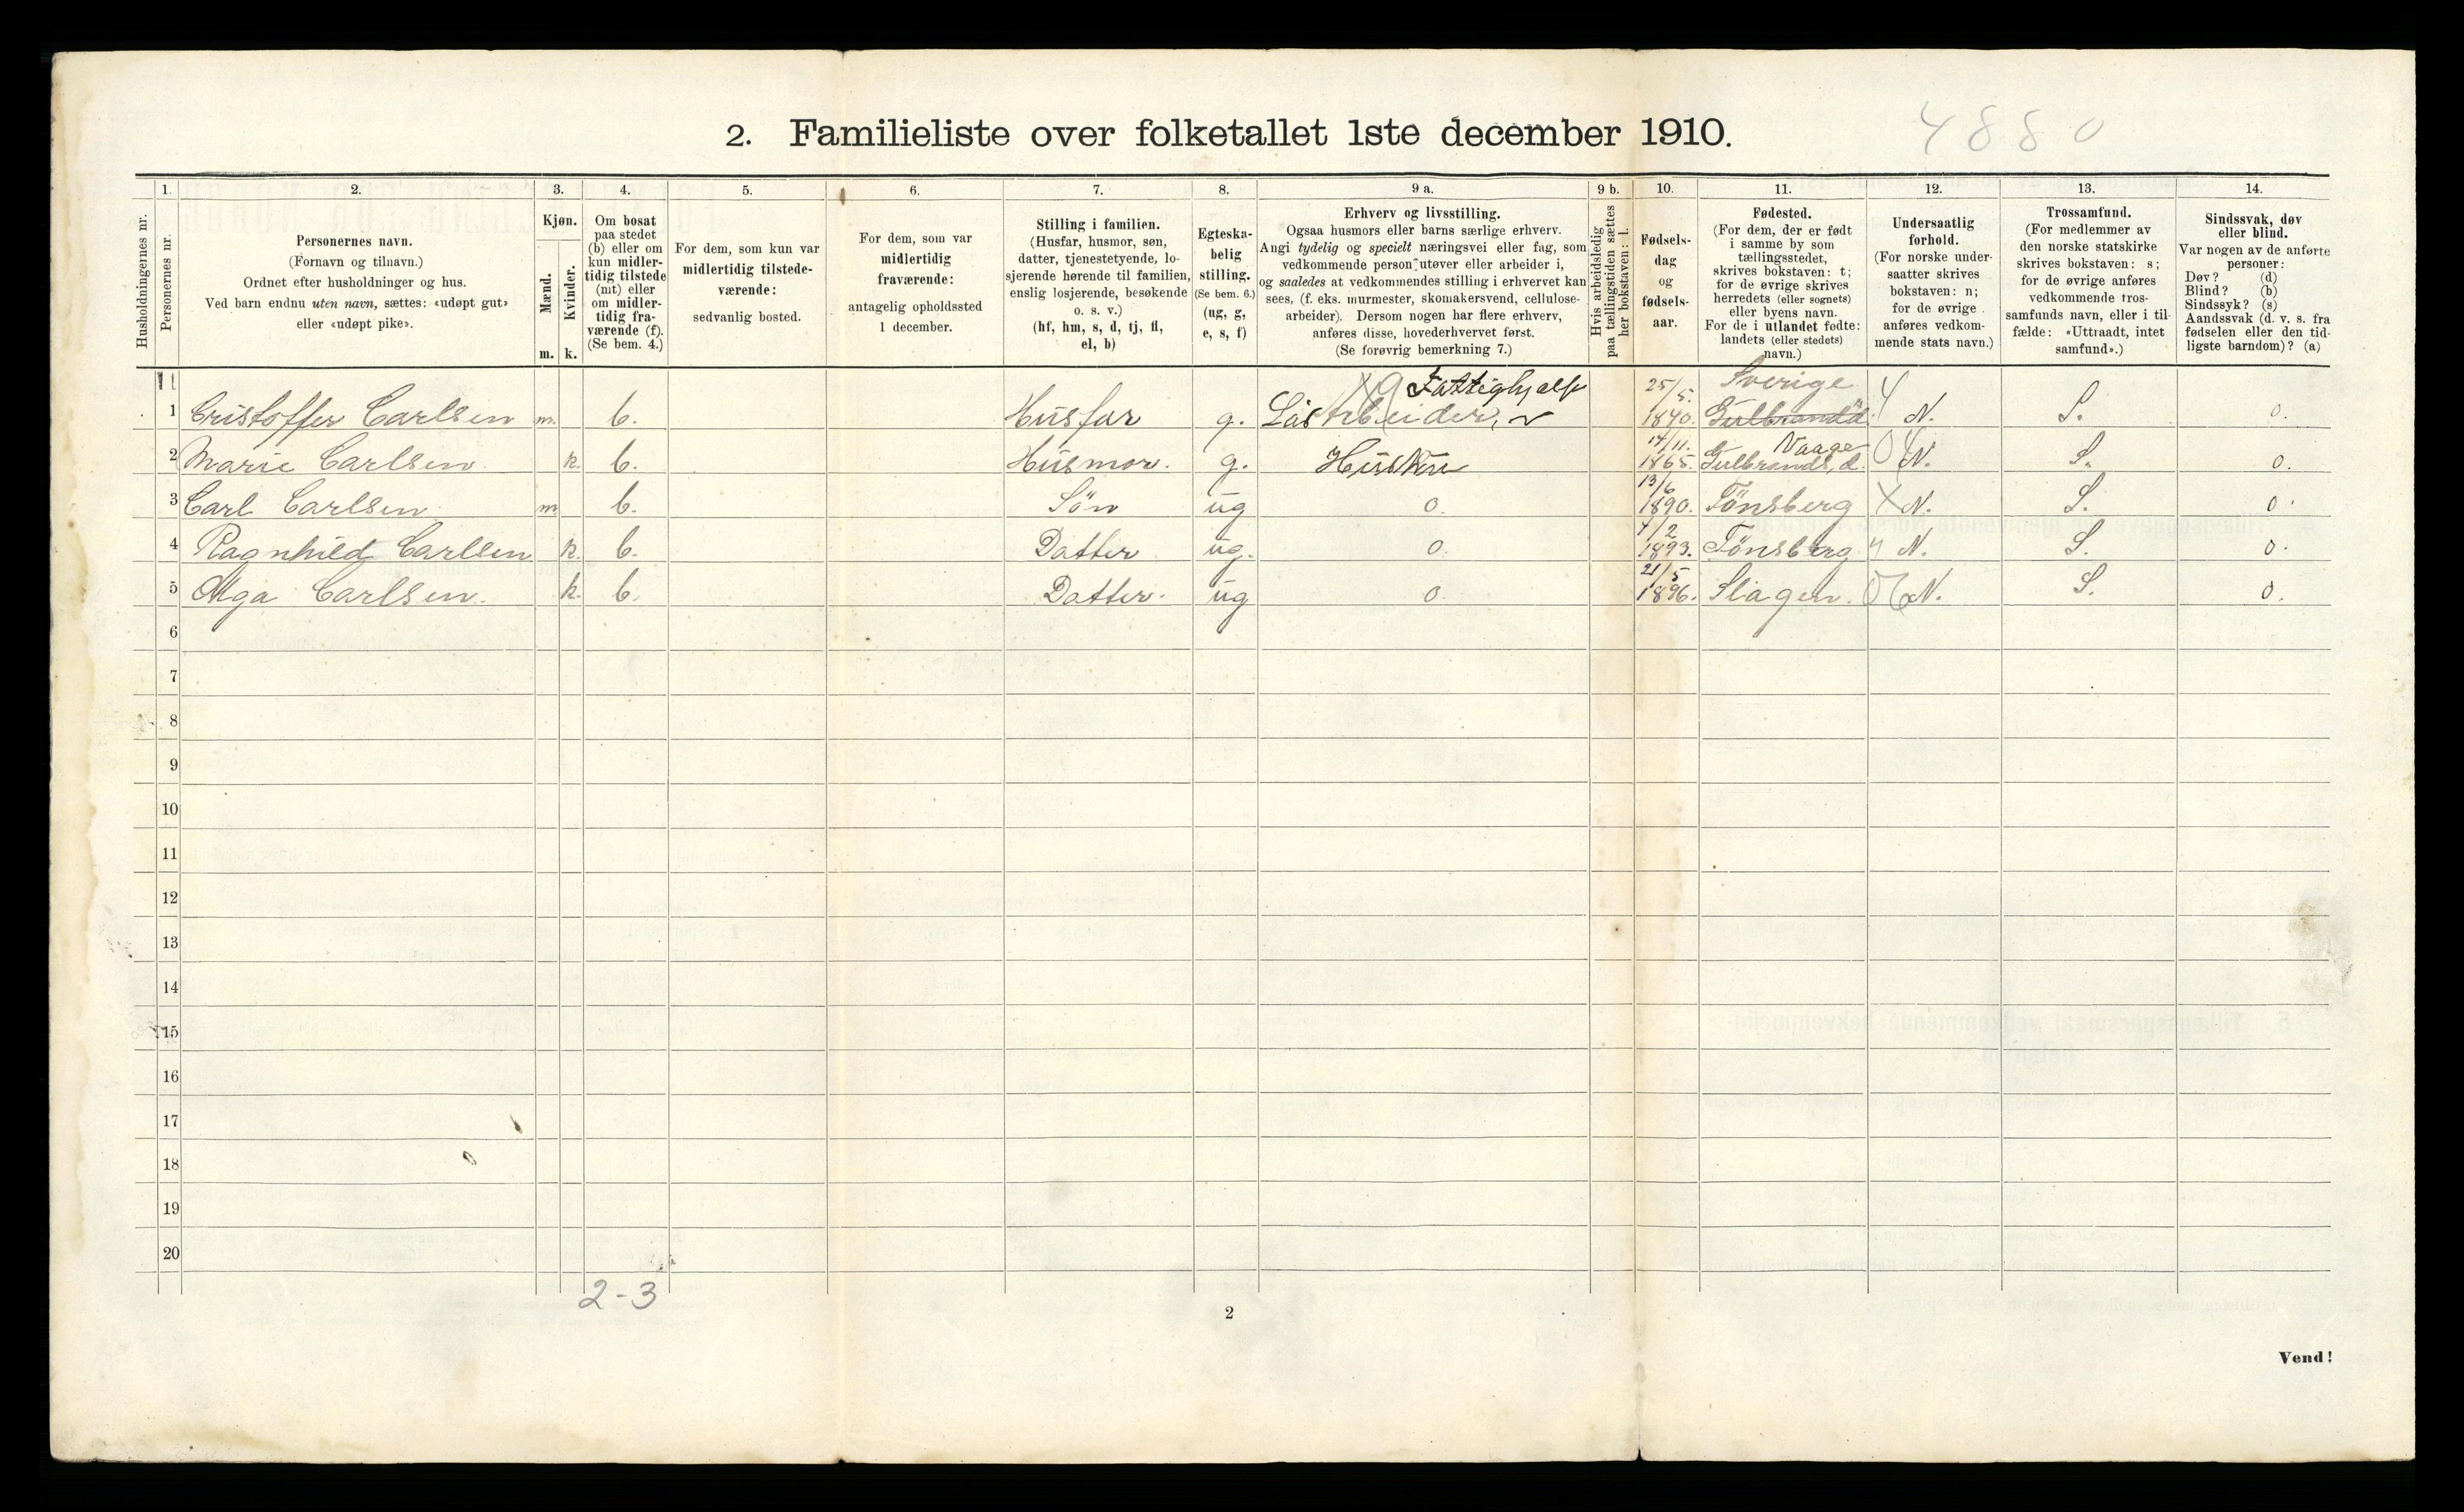 4880
2. Familieliste over folketallet 1ste december 1910.
1. 2. 3. 4. 5. 6. 7. 8. 9 a. 9 b. 10. 11. 12. 13. 14.
Husholdningernes nr.
Personernes nr.
Personernes navn.
(Fornavn og tilnavn.)
Ordnet efter husholdninger og hus.
Ved barn endnu uten navn, sættes: «udøpt gut»
eller «udøpt pike».
Kjøn.
Mænd.
Kvinder.
m. k.
Om bosat
paa stedet
(b) eller om
kun midler-
tidig tilstede
(mt) eller
om midler-
tidig fra-
værende (f).
(Se bem. 4.)
For dem, som kun var
midlertidig tilstede-
værende:
sedvanlig bosted.
For dem, som var
midlertidig
fraværende:
antagelig opholdssted
1 december.
Stilling i familien.
(Husfar, husmor, søn,
datter, tjenestetyende, lo-
sjerende hørende til familien,
enslig losjerende, besøkende
o. s. v.)
(hf, hm, s, d, tj, fl,
el, b)
Egteska-
belig
stilling.
(Se bem. 6.)
(ug, g,
e, s, f)
Erhverv og livsstilling.
Ogsaa husmors eller barns særlige erhverv.
Angi tydelig og specielt næringsvei eller fag, som
vedkommende person utøver eller arbeider i,
og saaledes at vedkommendes stilling i erhvervet kan
sees, (f. eks. murmester, skomakersvend, cellulose-
arbeider). Dersom nogen har flere erhverv,
anføres disse, hovederhvervet først.
(Se forøvrig bemerkning 7.)
Hvis arbeidsledig
paa tællingstiden sættes
her bokstaven: l.
Fødsels-
dag
og
fødsels-
aar.
Fødested.
(For dem, der er født
i samme by som
tællingsstedet,
skrives bokstaven: t;
for de øvrige skrives
herredets (eller sognets)
eller byens navn.
For de i utlandet fødte:
landets (eller stedets)
navn.)
Undersaatlig
forhold.
(For norske under-
saatter skrives
bokstaven: n;
for de øvrige
anføres vedkom-
mende stats navn.)
Trossamfund.
(For medlemmer av
den norske statskirke
skrives bokstaven: s;
for de øvrige anføres
vedkommende tros-
samfunds navn, eller i til-
fælde: «Uttraadt, intet
samfund».)
Sindssvak, døv
eller blind.
Var nogen av de anførte
personer:
Døv? (d)
Blind? (b)
Sindssyk? (s)
Aandssvak (d. v. s. fra
fødselen eller den tid-
ligste barndom)? (a)
Fattighjælp 25/5. Sverige
1 Cristoffer Carlsen m. b. Husfar g. Arbeider, 1840. N. S. 0.
14/11. Naage
2 Marie Carlsen k. b. Husmor. g. Hustru 1865. N. S. 0.
13/6
3 Carl Carlsen m b. Sön ug 0. 1890. Tönsberg N. S. 0.
4/2
4 Ragnhild Carlsen k. b. Datter ug. 0. 1893. Tönsberg N. S. 0.
21/5
5 Olga Carlsen. k. b. Datter. ug 0. 1896. Slagen. N. S. 0.
6
7
8
9
10
11
12
13
14
15
16
17
18
19
20
2-3
2
Vend!